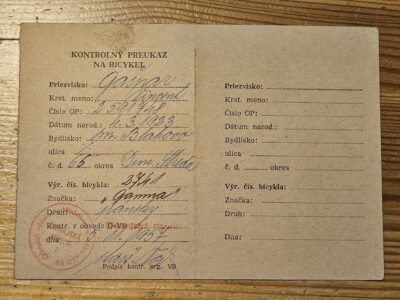 KONTROLNÝ PREUKAZ
NA BICYKEL
Priezvisko: Gašpar
Krst. meno: Vincent
Číslo OP: 2591748
Dátum narod.: 4.3.1923
Bydlisko:
ulica
č. d. 65 okres Dun. Streda
Výr. čís. bicykla: 2741
Značka: "Gamma"
Druh: Pánsky
Kontr. v obvode O-VB
dňa 3.11.1957
Podpis kontr. org. VB
Priezvisko:
Krst. meno:
Číslo OP:
Dátum narod.:
Bydlisko:
ulica
č. d. okres
Výr. čís. bicykla:
Značka:
Druh:
Dňa: